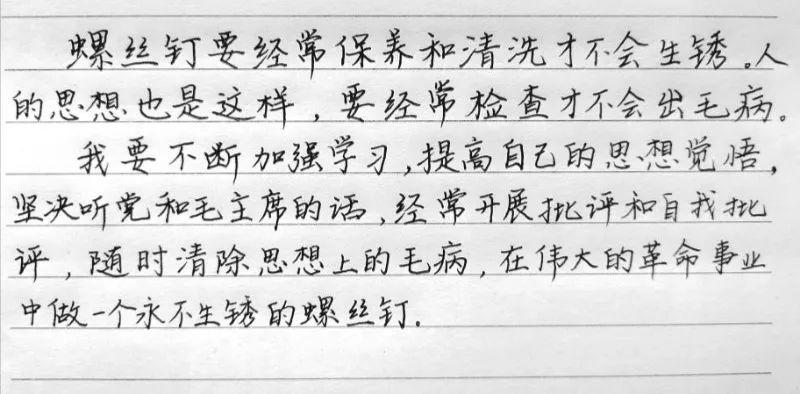 螺丝钉要经常保养和清洗才不会生锈。人
的思想也是这样，要经常检查才不会出毛病。
我要不断加强学习，提高自己的思想觉悟，
坚决听党和毛主席的话，经常开展批评和自我批
评，随时清除思想上的毛病，在伟大的革命事业
中做一个永不生锈的螺丝钉.